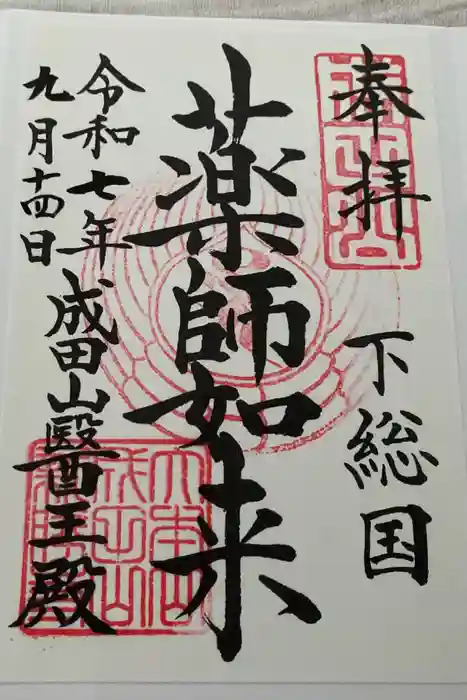 奉拝
下総国
薬師如来
令和七年
九月十四日
成田山醫王殿